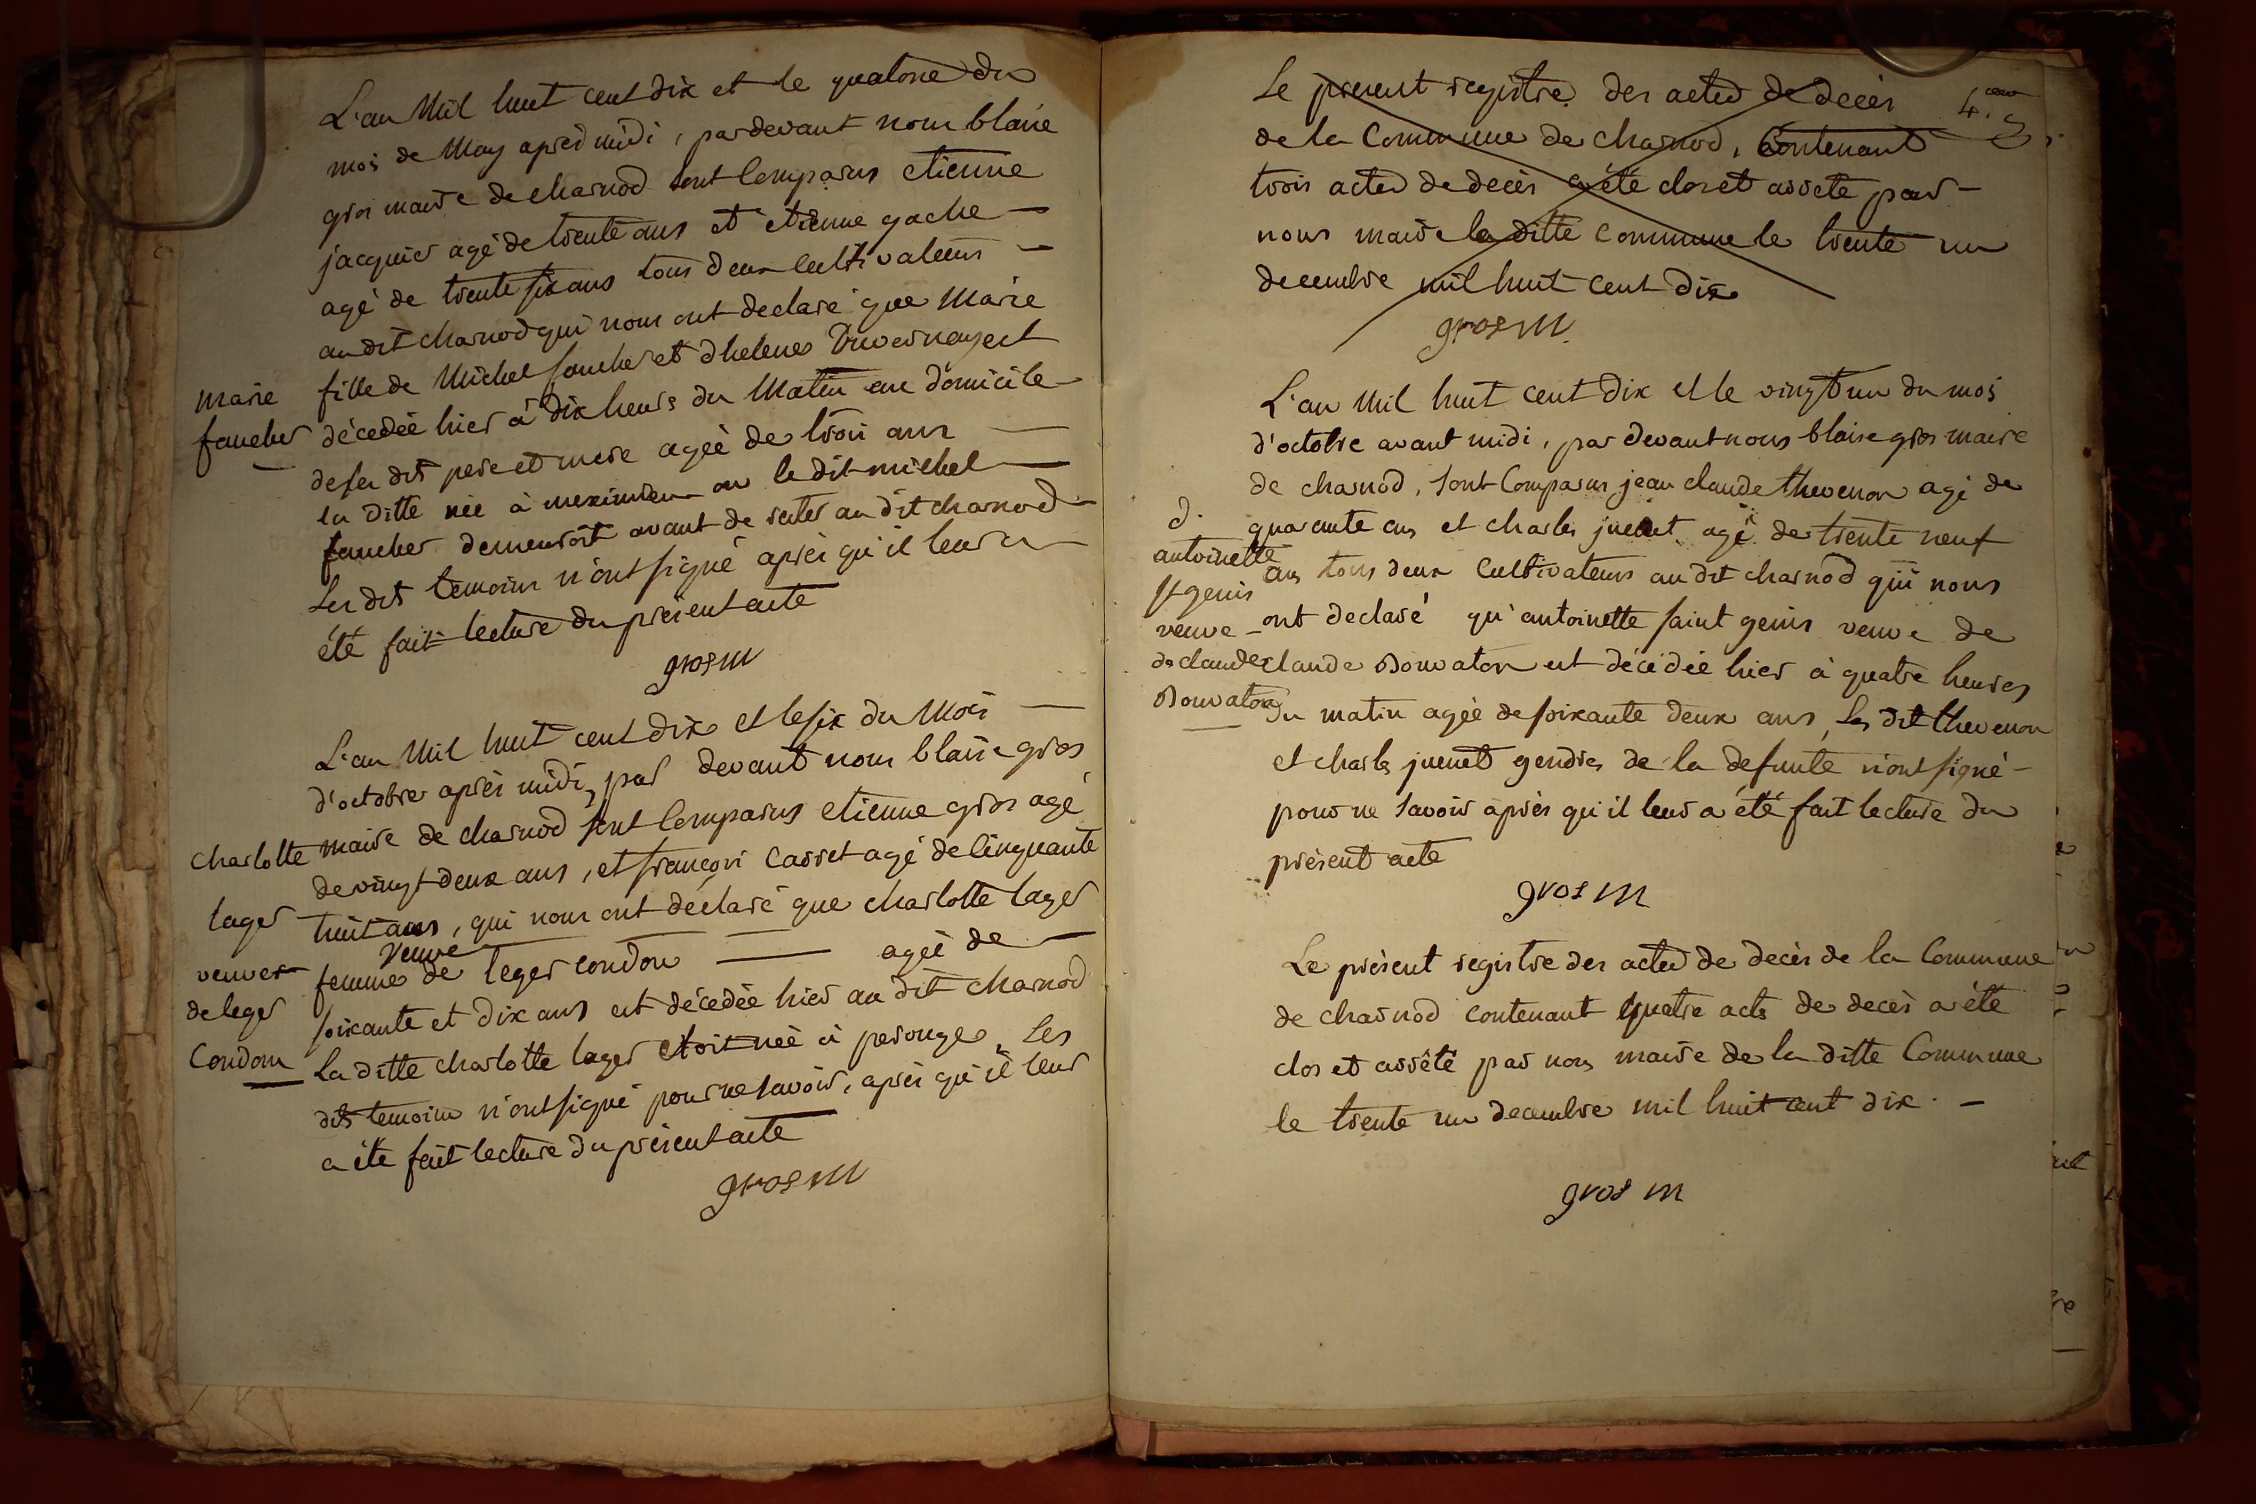 L'an mil huit cent dix et le quatorze du
mois de May apres midi, pardevant nous blaise
gros maire de charnod sont Comparus etienne
jacquier agé de trente ans et etienne gache
agé de trente six ans tous deux Cultivateurs
au dit charnod qui nous ont declaré que Marie
fille de Michel faucher et d'helene Duvernay est
marie
faucher
décedée hier à dix heures du Matin au domicile
deses dits pere et mere agée de trois ans
la ditte née à meximieu ou le dit michel
faucher demeuroit avant de rester au dit charnod
Les dits temoins n'ont signé après qu'il leur a
été fait lecture du présent acte
gros m
L'an Mil huit cent dix et le six du Mois
d'octobre après midi, par devant nous blaise gros
maire de charnod sont Comparus etienne gros agé
de vingt deux ans, et françois Carret agé de Cinquante
huit ans, qui nous ont déclaré que charlotte lager
veuve
femme de leger condon agée de
soixante et dix ans est décedée hier au dit charnod
La ditte charlotte lager etoit née à perouge, Les
dits temoins n'ont signé pour ne savoir, après qu'il leur
a été fait lecture du présent acte
gros m
charlotte
lager
veuve
de leger
Condon
Le present registre des actes de decès
de la Commune de charnod, Contenant
trois actes de decès a été clos et arreté par
nous maire la ditte Commune le trente un
decembre mil huit cent dix
gros m.
4.
L'an Mil huit cent dix et le vingt un du mois
d'octobre avant midi, par devant nous blaise gros maire
de charnod, sont Comparus jean claude thevenon agé de
quarante ans et charles juenet agé de trente neuf
ans tous deux Cultivateurs au dit charnod qui nous
ont declaré qu'antoinette saint genis veuve de
claude Donvaton est décédée hier à quatre heures
du matin agée de soixante deux ans, Les dit thevenon
et charles juenet gendres de la defunte n'ont signé
pour ne savoir après qu'il leur a été fait lecture du
présent acte
gros m
d.
antoinette
st genis
veuve
de claude
Donvaton
Le présent registre des actes de decès de la Commune
de charnod contenant quatre acts de decès a été
clos et arrêté par nous maire de la ditte Commune
le trente un decembre mil huit cent dix.
gros m